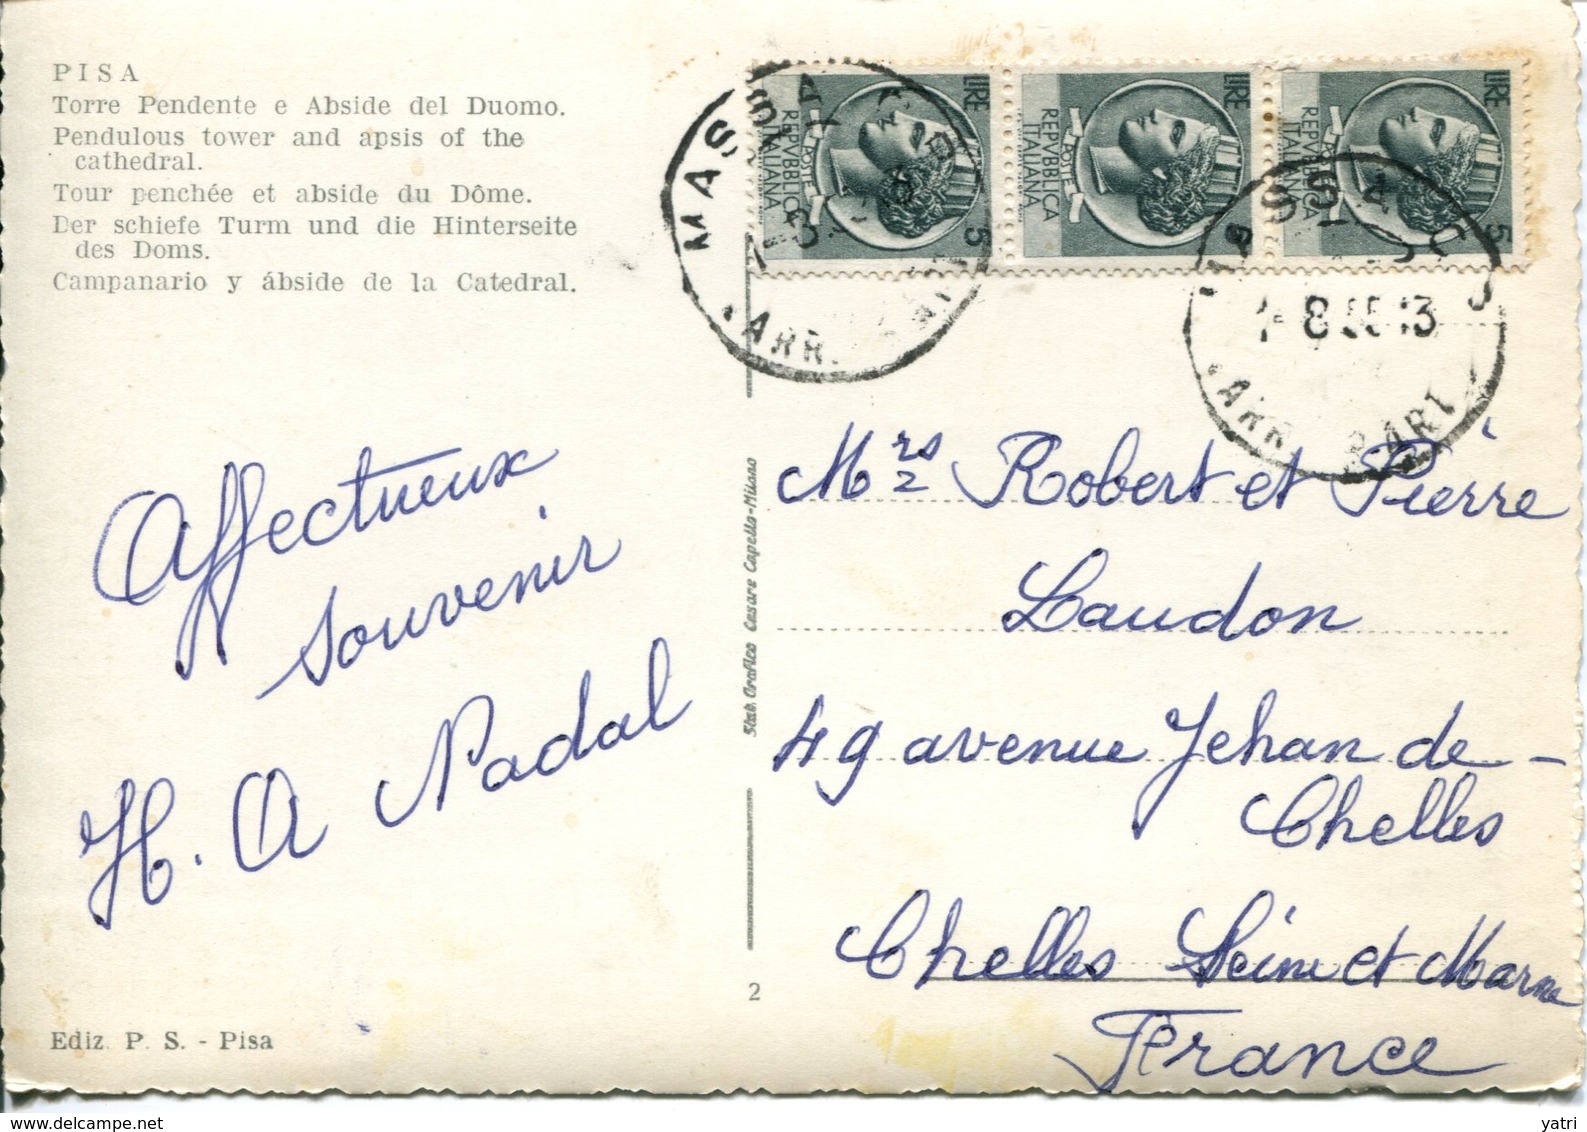 PISA
Torre Pendente e Abside del Duomo.
Pendulous tower and apsis of the
cathedral.
Tour penchée et abside du Dôme.
Der schiefe Turm und die Hinterseite
des Doms.
Campanario y ábside de la Catedral.
LIRE 5
REPVBBLICA
ITALIANA
POSTE
LIRE 5
REPVBBLICA
ITALIANA
POSTE
LIRE 5
REPVBBLICA
ITALIANA
POSTE
MASSA
ARR.
ARR PART
Affectueux
souvenir
H. A Nadal
Stab. Grafico Cesare Capello-Milano
Mrs Robert et Pierre
Laudon
49 avenue Jehan de-
Chelles
Chelles Seine et Marne
France
2
Ediz. P. S. - Pisa
yatri